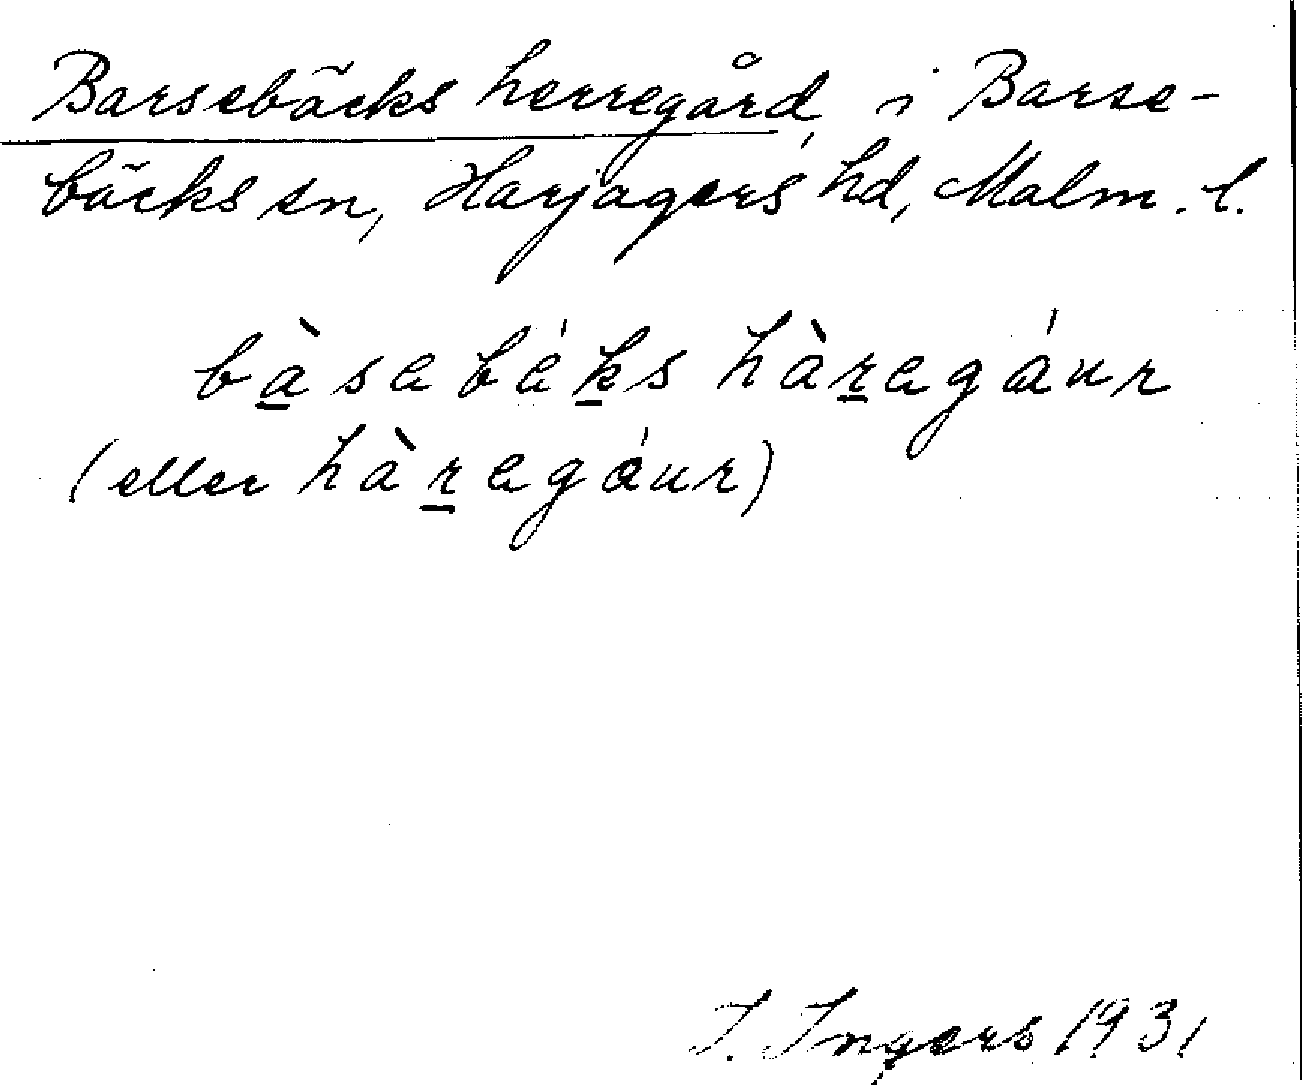 Barsebäcks herregård, i Barse-
bäcks sn, Harjagers hd, Malm. l.
bàsebéks hàregáur
(eller hàregáur)
I. Ingers 1931